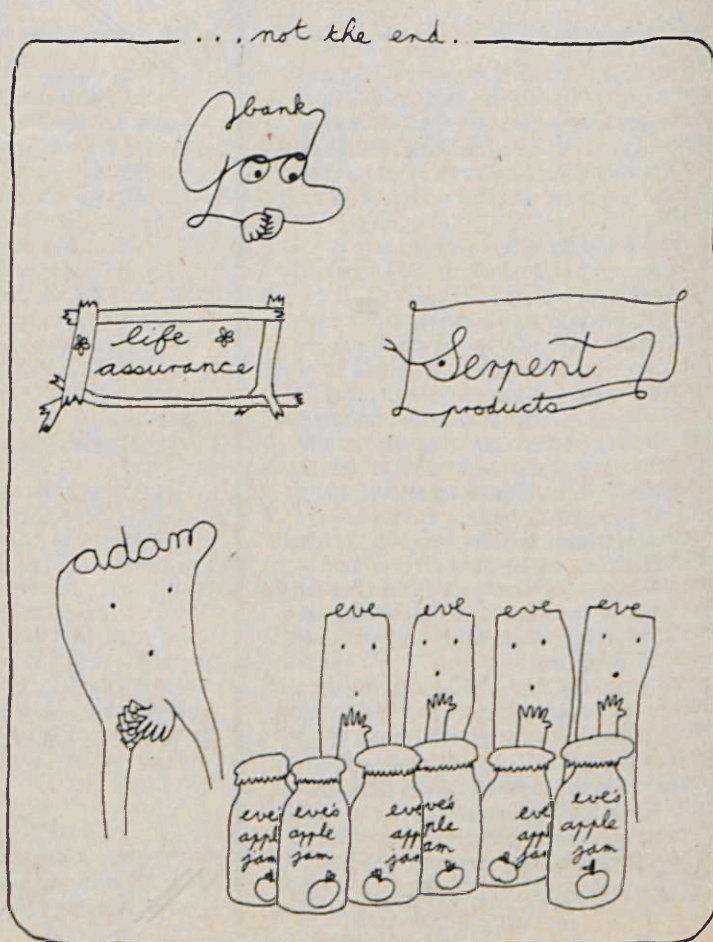 ...not the end..
bank
life
assurance
Serpent
products
adam
eve
eve
eve
eve
eve's
apple
jam
eve's
apple
jam
eve
app
jam
eve's
ple
am
eve
appl
jam
eve's
apple
jam